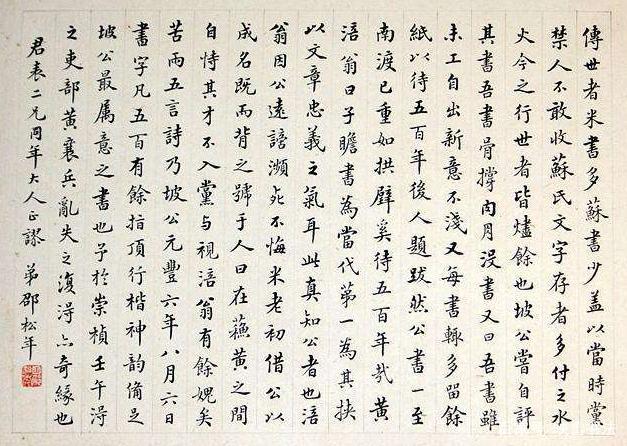 傳世者米書多蘇書少盖以當時黨
禁人不敢收蘇氏文字存者多付之水
火今之行世者皆燼餘也坡公嘗自評
其書吾書骨撑肉月没書又曰吾書雖
未工自出新意不淺又每書輙多留餘
紙以待五百年後人題跋然公書一至
南渡已重如拱璧奚待五百年哉黄
涪翁曰子瞻書為當代第一為其挟
以文章忠義之氣耳此真知公者也涪
翁因公遠謫瀕死不悔米老初借公以
成名既而背之號于人曰在蘓黄之間
自恃其才不入黨与視涪翁有餘媿矣
苦雨五言詩乃坡公元豐六年八月六日
書字凡五百有餘指頂行楷神韵俻足
坡公最属意之書也予於崇禎壬午淂
之吏部黄襄兵亂失之復淂亦奇緣也
君表二兄同年大人正謬 弟邵松年